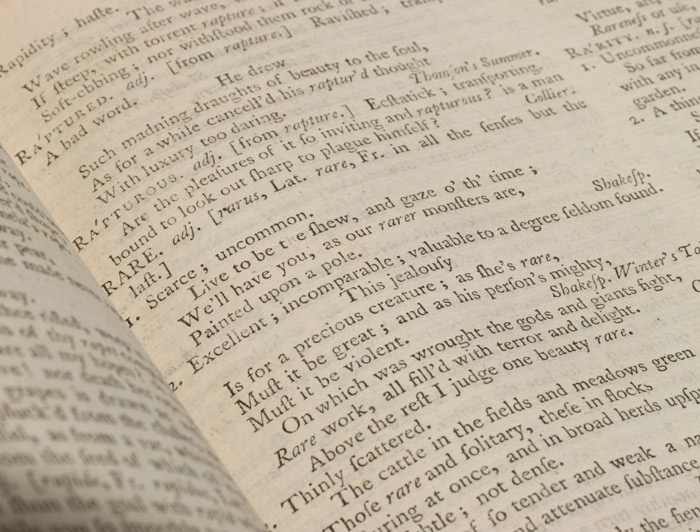 Rapidity; haste.
The wa
Wave rowling after wave,
If steep, with torrent rapture; if
Soft-ebbing; nor withstood them rock or
RA'PTURED. adj. [from rapture.] Ravished; tran
A bad word.
He drew
Such madning draughts of beauty to the soul,
As for a while cancell'd his raptur'd thought
With luxury too daring. Thomson's Summer.
RA'PTUROUS. adj. [from rapture.] Ecstatick; transporting.
Are the pleasures of it so inviting and rapturous? is a man
bound to look out sharp to plague himself? Collier.
RARE. adj. [rarus, Lat. rare, Fr. in all the senses but the
last.]
1. Scarce; uncommon.
Live to be the shew, and gaze o' th' time;
We'll have you, as our rarer monsters are,
Painted upon a pole. Shakesp.
2. Excellent; incomparable; valuable to a degree seldom found.
This jealousy
Is for a precious creature; as she's rare,
Must it be great; and as his person's mighty,
Must it be violent. Shakesp. Winter's Ta
On which was wrought the gods and giants fight,
Rare work, all fill'd with terror and delight.
Above the rest I judge one beauty rare.
Thinly scattered.
The cattle in the fields and meadows green
Those rare and solitary, these in flocks
uring at once, and in broad herds upsp
btle; not dense.
of so tender and weak a
and attenuate substance
Virtue, any
Rareness or use
RA'RITY. n. s. [
1. Uncommonne
So far from
with any in
garden.
2. A thi